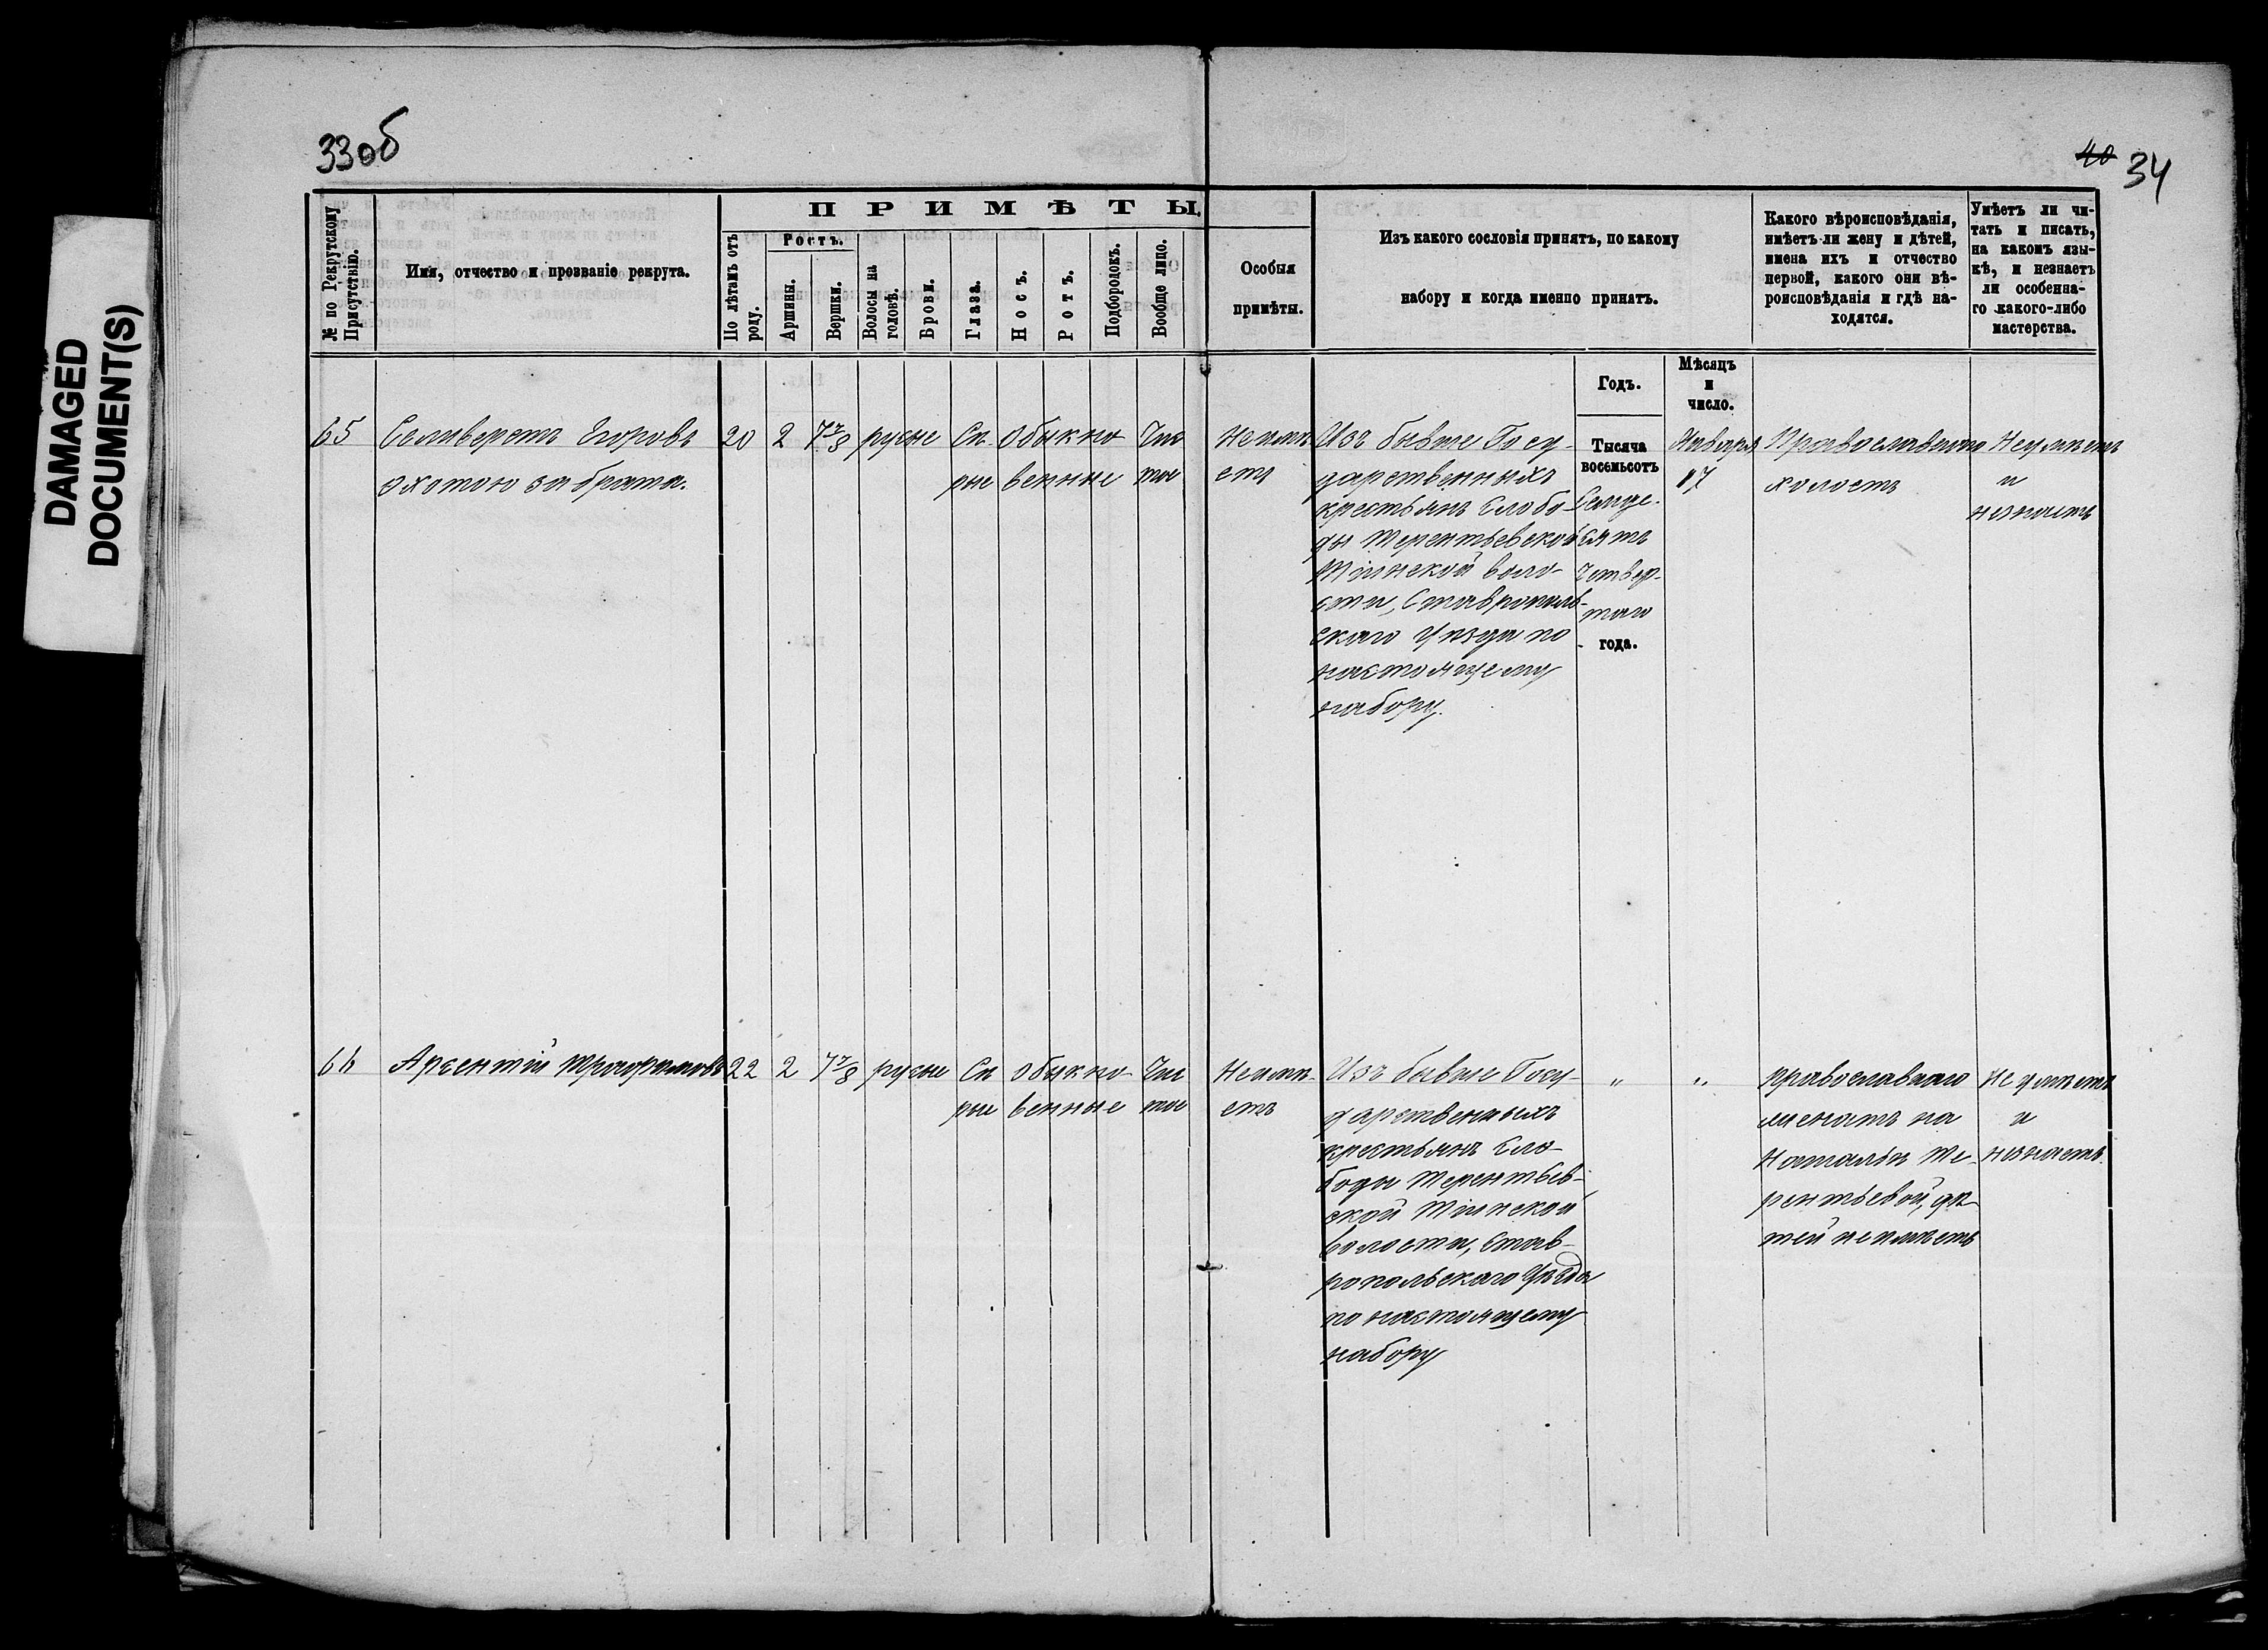 DAMAGED
DOCUMENT(S)
33об
40 34
№ по Рекрутскому Присутствію.
Имя, отчество и прозваніе рекрута.
ПРИМѢТЫ.
По лѣтамъ отъ роду.
Ростъ.
Аршины.
Вершки.
Волосы на головѣ.
Брови.
Глаза.
Носъ.
Ротъ.
Подбородокъ.
Вообще лицо.
Особыя
примѣты.
Изъ какого сословія принятъ, по какому
набору и когда именно принятъ.
Какого вѣроисповѣданія,
имѣетъ-ли жену и дѣтей,
имена ихъ и отчество
первой, какого они вѣ-
роисповѣданія и гдѣ на-
ходятся.
Умѣетъ ли чи-
тать и писать,
на какомъ язы-
кѣ, и незнаетъ
ли особенна-
го какого-либо
мастерства.
Годъ.
Мѣсяцъ
и
число.
65 Селиверстъ Егоровъ 20 2 7 7/8 русые Сѣ- Обыкно- Чис-
охотою за брата. рые венные тое
Неимѣ-
етъ
Изъ бывше Госу-
дарственныхъ
крестьянъ Слобо-
ды Терентьевской
Тіинской воло-
сти, Ставрополь-
скаго Уѣзда по
настоящему
набору.
Тысяча
восемьсотъ
Семьде-
сятъ
четвер-
таго
года.
Января
17
Православнаго
холостъ
Неумѣетъ
и
незнаетъ
66 Арсентій Трофимовъ 22 2 7 7/8 русые Сѣ- обыкно- Чис-
рые венные тое
Неимѣ-
етъ
Изъ бывше Госу-
дарственныхъ
крестьянъ Сло-
боды Терентьев-
ской Тіинской
волости, Став-
ропольскаго Уѣзда
по настоящему
набору
" "
православнаго
женатъ на
Натальѣ Те-
рентьевой, дѣ-
тей неимѣетъ
Не умѣетъ
и
незнаетъ.